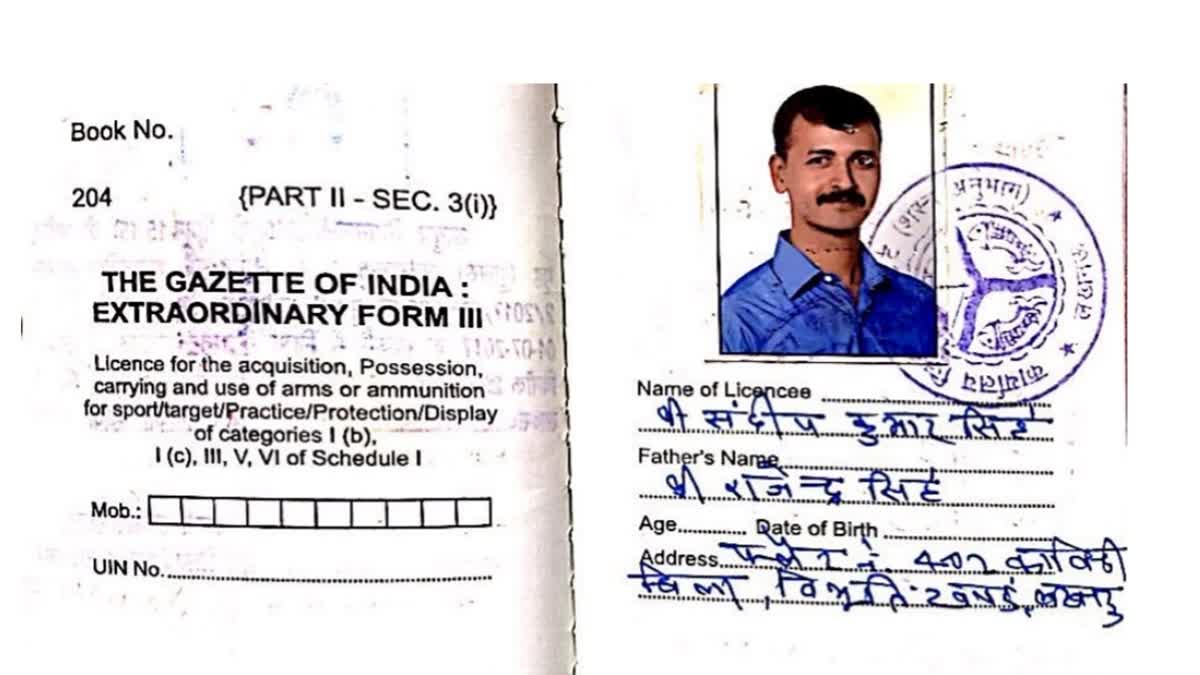 Book No.
204
{PART II - SEC. 3(i)}
THE GAZETTE OF INDIA :
EXTRAORDINARY FORM III
Licence for the acquisition, Possession,
carrying and use of arms or ammunition
for sport/target/Practice/Protection/Display
of categories I (b),
I (c), III, V, VI of Schedule I
Mob.:
UIN No.
अनुभाग)
कार्यालय
Name of Licencee
श्री संदीप कुमार सिंह
Father's Name
श्री राजेन्द्र सिंह
Age Date of Birth
Address फ्लैट नं. 402
विला, विभूति खण्ड, लखनऊ